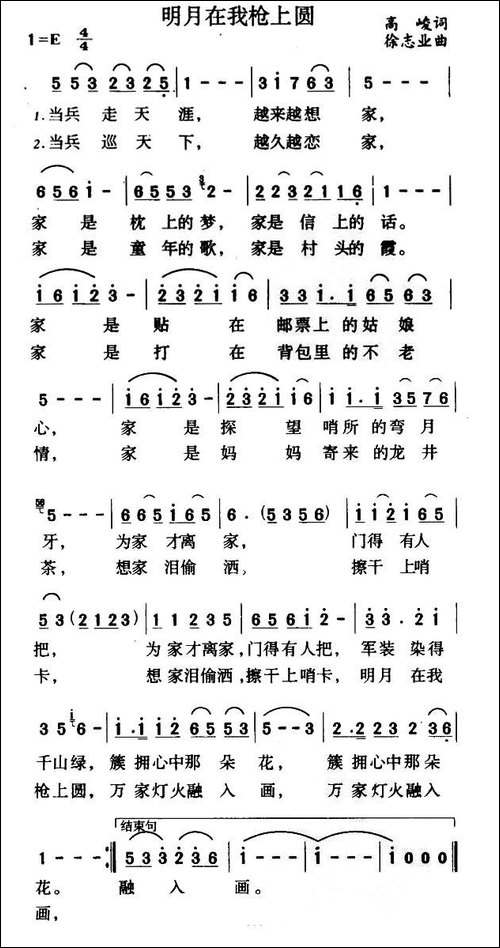 明月在我枪上圆
1=E 4/4
高 峻词
徐志业曲
5 5 3 2 3 2 5 | 1 - - - | 3 1 7 6 3 | 5 - - - |
1.当兵 走 天 涯, 越来越想 家,
2.当兵 巡 天 下, 越久越恋 家,
6 5 6 i - | 6 5 5 3 2 - | 2 2 3 2 1 1 6 | 1 - - - |
家 是 枕 上的梦, 家是 信 上的 话。
家 是 童 年的歌, 家是 村 头的 霞。
i 6 i 2 3 - | 2 3 2 i i 6 | 3 3 i . i 6 5 6 3 |
家 是 贴 在 邮票上 的姑 娘
家 是 打 在 背包里 的不 老
5 - - - | i 6 i 2 3 - | 2 3 2 i i 6 | i i . i 3 5 7 6 |
心, 家 是 探 望 哨所 的弯 月
情, 家 是 妈 妈 寄来 的龙 井
5 - - - | 6 6 5 i 6 5 | 6 . (5 3 5 6) | i i 2 i 6 5 |
牙, 为家 才离 家, 门得 有人
茶, 想家 泪偷 洒, 擦干 上哨
5 3 (2 1 2 3) | 1 1 2 3 5 | 6 5 6 i 2 - | 3 3 . 2 i |
把, 为 家才离家,门得有人把, 军装 染得
卡, 想 家泪偷洒,擦干上哨卡, 明月 在我
3 5 6 - | i . i i 2 6 5 5 3 | 2 . 2 2 3 2 3 6 |
千山绿, 簇 拥心中那 朵 花, 簇 拥心中那 朵
枪上圆, 万 家灯火融 入 画, 万 家灯火融 入
结束句
1 - - - :| 5 3 3 2 3 6 | i - - - | i - - - | i 0 0 0 ||
花。 融 入 画。
画,